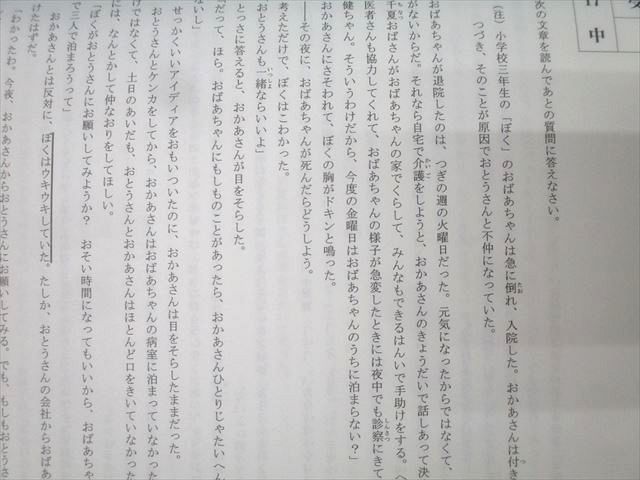 日中
次の文章を読んであとの質問に答えなさい。
(注) 小学校三年生の「ぼく」のおばあちゃんは急に倒れ、入院した。おかあさんは付き
つづき、そのことが原因でおとうさんと不仲になっていた。
おばあちゃんが退院したのは、つぎの週の火曜日だった。元気になったからではなくて、
がないからだ。それなら自宅で介護をしようと、おかあさんのきょうだいで話しあって決
千夏おばさんがおばあちゃんの家でくらして、みんなもできるはんいで手助けをする。
医者さんも協力してくれて、おばあちゃんの様子が急変したときには夜中でも診察にきて
健ちゃん。そういうわけだから、今度の金曜日はおばあちゃんのうちに泊まらない?」
おかあさんにさそわれて、ぼくの胸がドキンと鳴った。
――その夜に、おばあちゃんが死んだらどうしよう。
考えただけで、ぼくはこわかった。
おとうさんも一緒ならいいよ」
とっさに答えると、おかあさんが目をそらした。
だって、ほら。おばあちゃんにもしものことがあったら、おかあさんひとりじゃたいへん
ないし」
せっかくいいアイディアをおもいついたのに、おかあさんは目をそらしたままだった。
おとうさんとケンカをしてから、おかあさんはおばあちゃんの病室に泊まっていなかった
けではなくて、土日のあいだも、おとうさんとおかあさんはほとんど口をきいていなかった
には、なんとかして仲なおりをしてほしい。
「ぼくがおとうさんにお願いしてみようか? おそい時間になってもいいから、おばあちゃ
で三人で泊まろうって」
おかあさんとは反対に、ぼくはウキウキしていた。たしか、おとうさんの会社からおばあ
けたはずだ。
「わかったわ。今夜、おかあさんからおとうさんにお願いしてみる。でも、もしもおとうさ